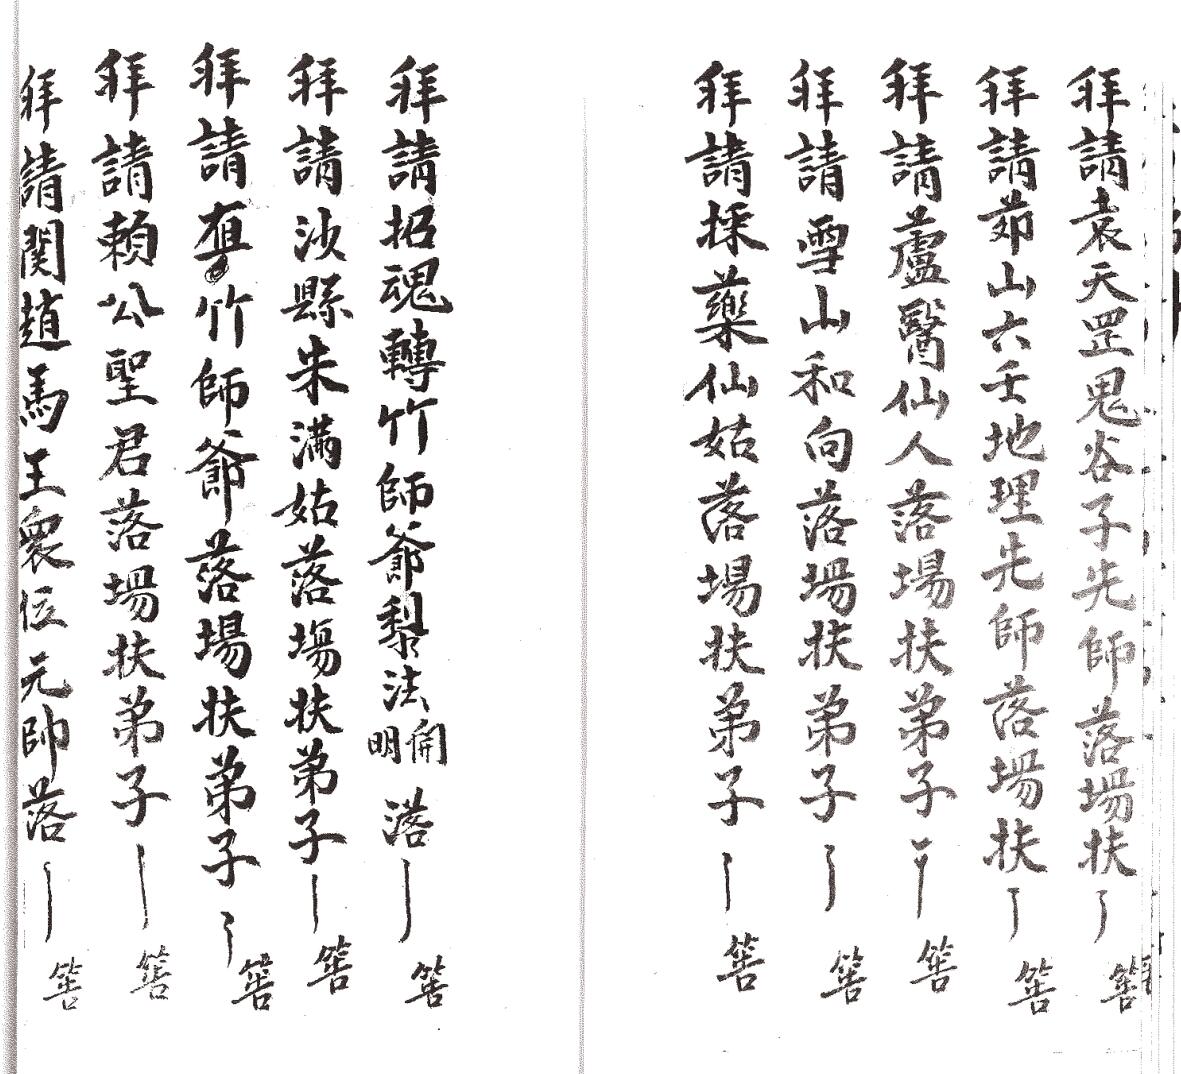 拜請袁天罡鬼谷子先師落場扶 筶
拜請茆山六壬地理先師落場扶 筶
拜請蘆醫仙人落場扶弟子 筶
拜請雪山和向落場扶弟子 筶
拜請採藥仙姑落場扶弟子 筶
拜請招魂轉竹師爺黎法開明 落 筶
拜請沙縣朱滿姑落場扶弟子 筶
拜請竹師爺落場扶弟子 筶
拜請賴公聖君落場扶弟子 筶
拜請関趙馬王衆位元帥落 筶